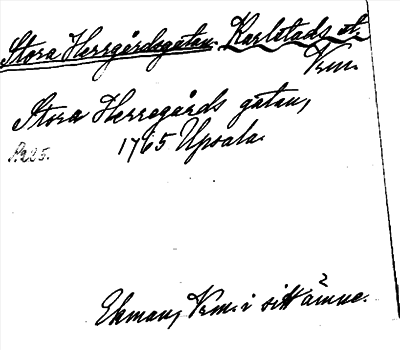 Stora Herrgårdsgatan. Karlstads st.
Vrm.
Stora Herregårds gatan,
1765 Upsala.
s. 225.
Ekman, Vrm. i sitt ämne.